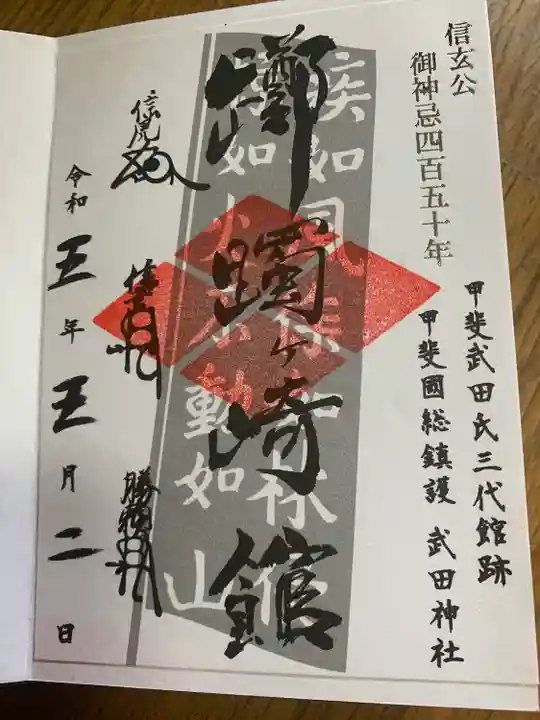 信玄公
御神忌四百五十年
甲斐武田氏三代館跡
甲斐國総鎮護 武田神社
躑躅ヶ崎館
疾如風徐如林侵
掠如火不動如山
信虎
信玄
勝頼
令和五年五月二日